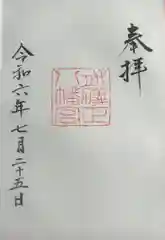 奉拝
八幡宮
令和六年七月二十五日